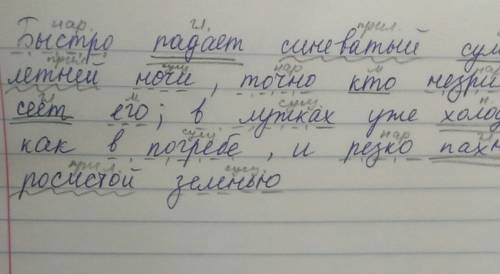 нар. гл. прил.
Быстро падает синеватый сум
прил. сущ. нар м нар
летней ночи, точно кто незри
гл м сущ.
сеет его; в лужках уже холод
сущ. нар
как в погребе, и резко пахн
прил. сущ.
росистой зеленью